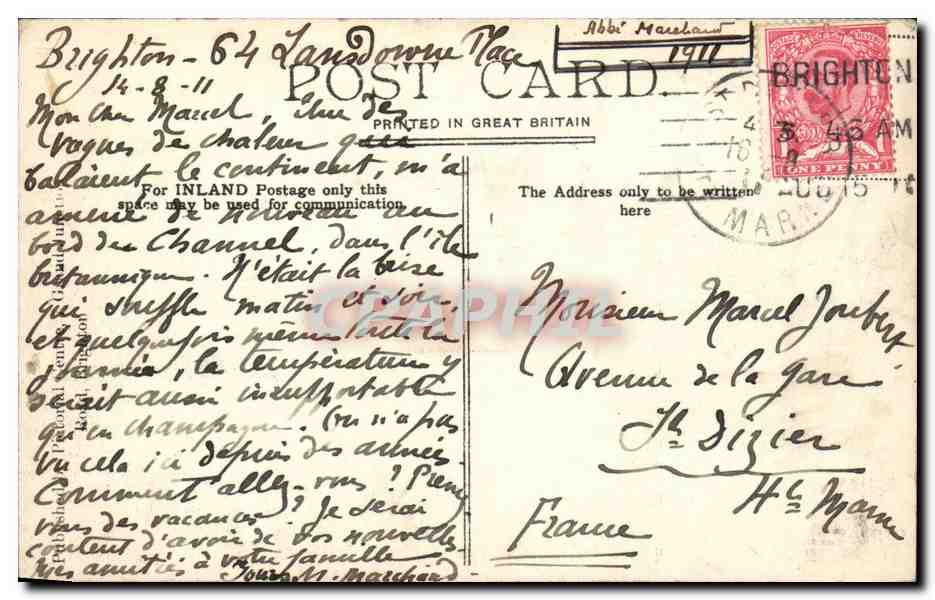 Brighton - 64 Lansdowne Place
14-8-11
Abbé Marchand
1911
POST CARD.
PRINTED IN GREAT BRITAIN
For INLAND Postage only this
space may be used for communication
The Address only to be written
here
BRIGHTON
AM
AUG 15
MARNE
ONE PENNY
Mon cher Marcel, Une des
vagues de chaleur qui
balaient le continent, m'a
amené de nouveau au
bord du Channel, dans l'île
britannique. N'était la brise
qui souffle matin et soir,
et quelquefois même toute la
journée, la température y
serait aussi insupportable
qu'en champagne. On n'a pas
vu cela ici depuis des années.
Comment allez-vous? Prenez
vous des vacances? Je serai
content d'avoir de vos nouvelles
mes amitiés à votre famille
Yours M. Marchand
Monsieur Marcel Joubert
Avenue de la gare
St. Dizier
Hte Marne
France
CPAPHIL